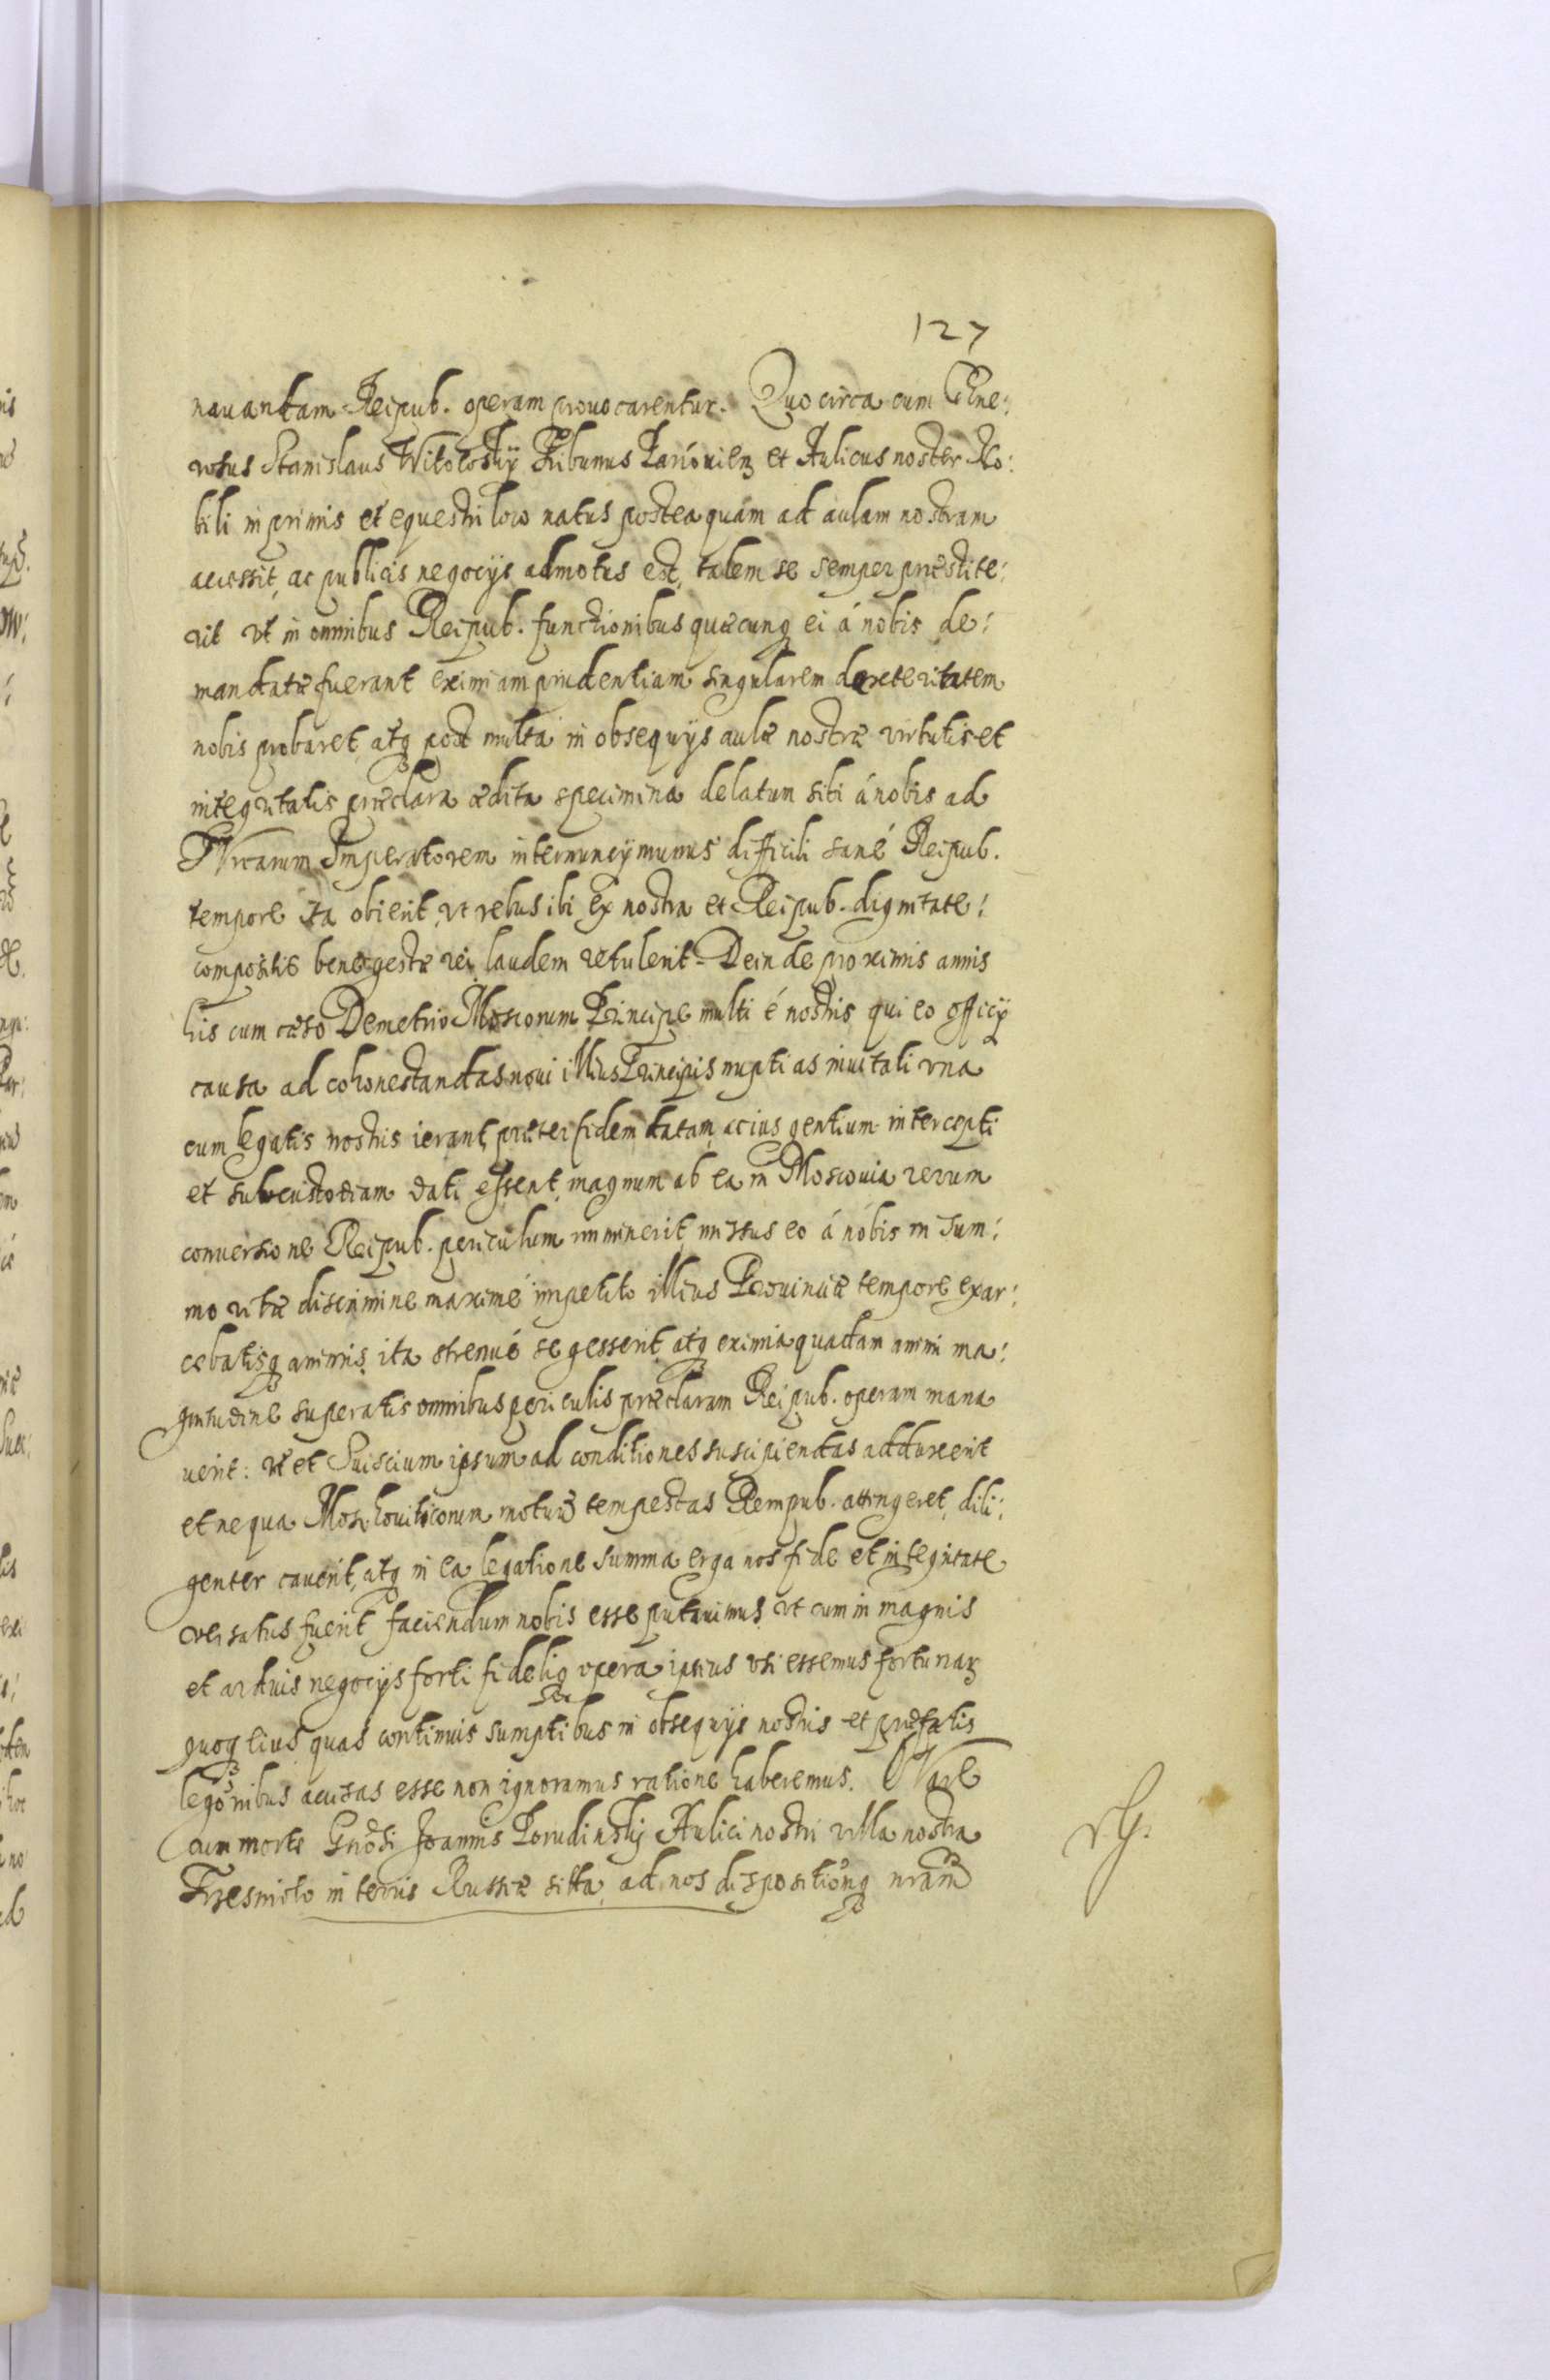 127
nauandam Reipub. operam prouocarentur. Quocirca cum Gene:
rosus Stanislaus Witowsky Tribunus et Aulicus noster No:
bili inprimis et equestri loco natus posteaquám ad aulam nostram
accessit, ac publicis negocijs admotus est, talem se semper præstite:
rit vt in omnibus Reipub. functionibus quæcunq ei á nobis de:
mandatæ fuerant eximiam prudentiam singularem dexteritatem
nobis probaret, atq post multa in obsequijs aulæ nostræ virtutis et
integritatis præclara ædita specimina delatum sibi á nobis ad
Turcarum Imperatorem internuncij munus difficili sané Reipub.
tempore ita obierit, vt rebus ibi ex nostra et Reipub. dignitate:
compositis bene gestæ rei laudem retulerit. Deinde proximis annis
his cum cæso Demetrio Moscorum Principe multi é nostris qui eo officij
causa ad cohonestandas noui illius Principis nuptias inuitati vna
cum legatis nostris ierant, præter fidem datam ac ius gentium intercepti
et sub custodiam dati essent, magnum ab ea in Moscouia rerum
conuersione Reipub. periculum imminerit, missus eo á nobis in sum:
mo vitæ discrimine maximé impetito illius Prouinciæ tempore exar:
cebatisq animis, ita strenué se gesserit, atq eximia quadam animi ma:
gnitudine superatis omnibus periculis præclaram Reipub. operam mana
uerit: vt et Suiscium ipsum ad conditiones suscipiendas adduxerit
et ne qua Moschouiticorum motuũ tempestas Rempub. attingeret, dili:
genter cauerit, atq in ea legatione summa erga nos fide et integritate
versatus fuerit faciendum nobis esse putauimus, vt cum in magnis
et arduis negocijs forti fideliq opera ipsius vsi essemus fortunaꝝ
quoq eius quas continuis sumptibus in obsequijs nostris et præfatis
legõnibus accisas esse non ignoramus ratione haberemus. Quare
cum morte Gnõsi Joannis Porudinsky Aulici nostri villa nostra
in terris Russiæ sitta, ad nos dispositionẽq nrãm